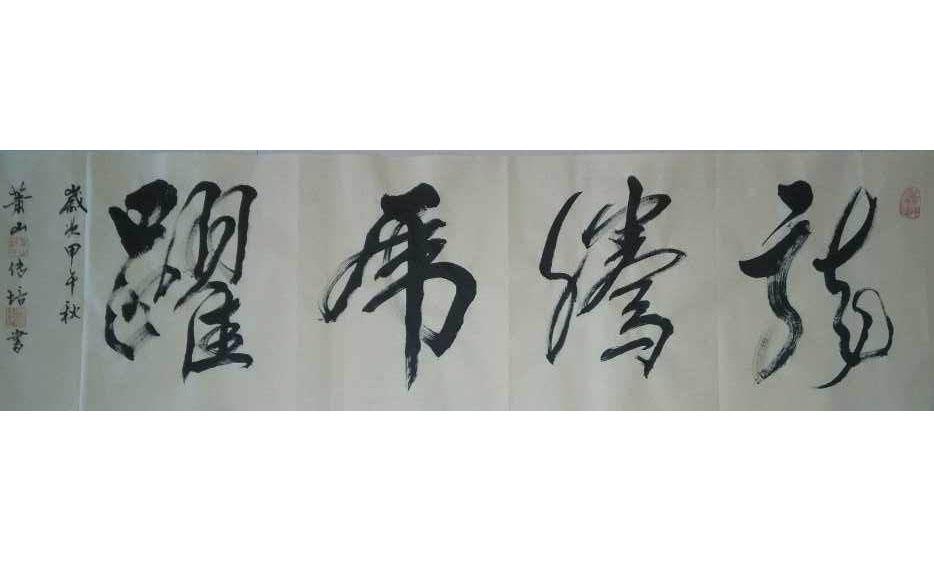 龍騰虎躍
歲次甲午秋
蕭山傳培書